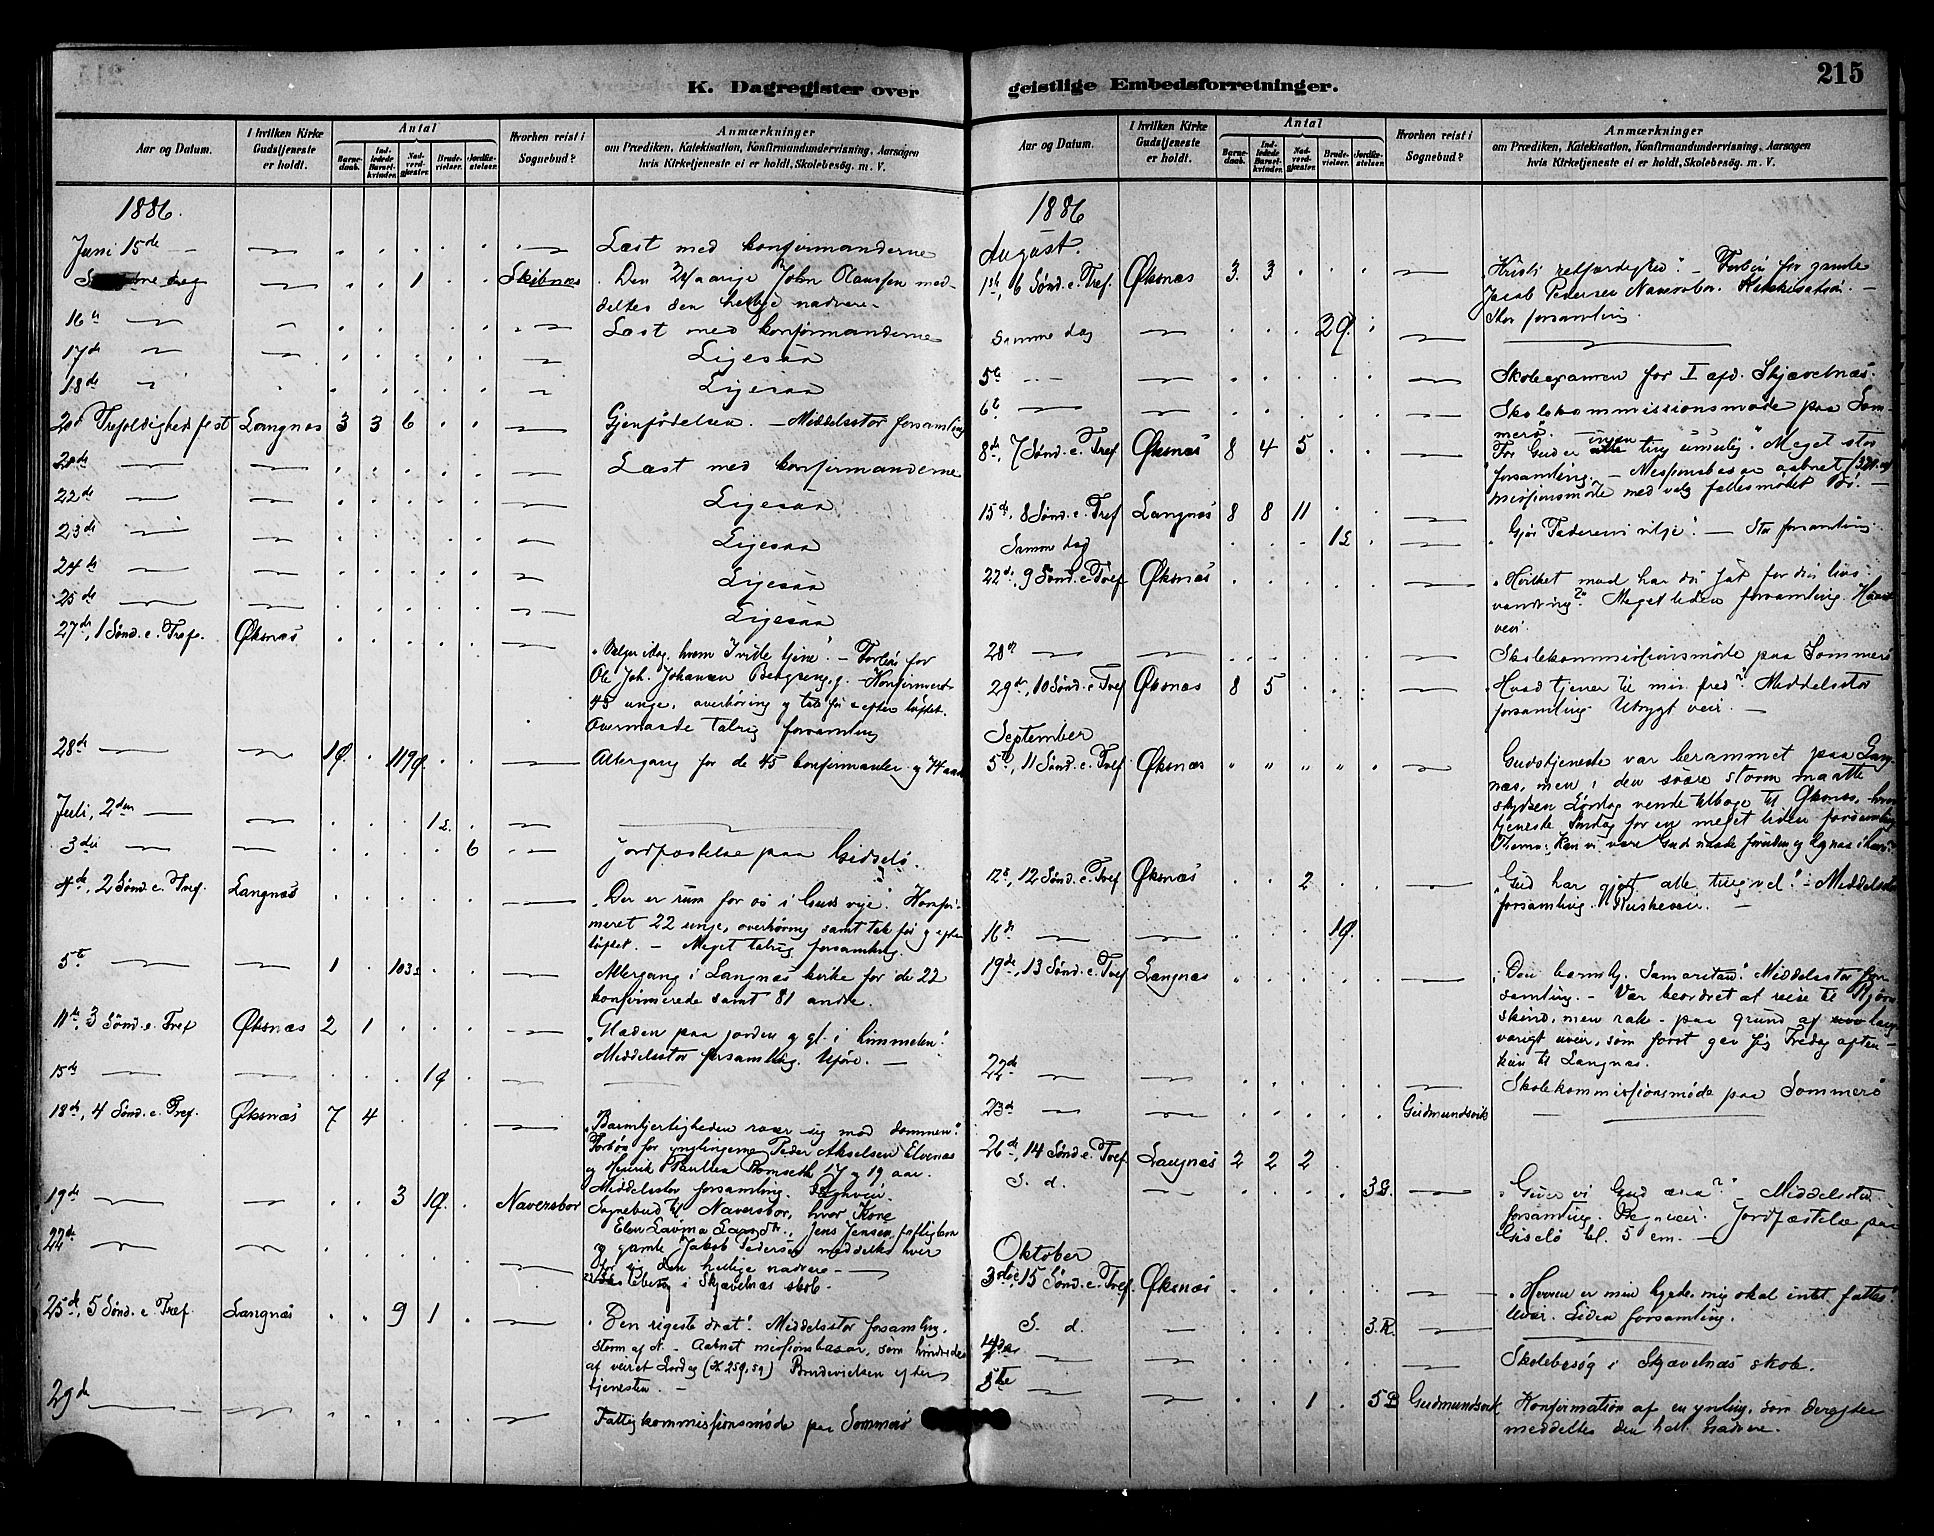 K. Dagregister over
Aar og Datum.
I hvilken Kirke Gudstjeneste er holdt.
Antal
Barnedaab.
Indledede Barselkvinder.
Nadverdgjæster.
Brudevielser.
Jordfæstelser.
Hvorhen reist i Sognebud?
Anmærkninger
om Prædiken, Katekisation, Konfirmandundervisning, Aarsagen
hvis Kirketjeneste ei er holdt, Skolebesøg. m. V.
1886.
Juni 15de Læst med konfirmanderne
dag 1 Skibnæs Den aarige John Olaussen med-
deltes den hellige nadvere
16 Læst med konfirmanderne
17de Ligesaa
18de Ligesaa
Trefoldighedsfest Langnæs 3 3 6 Gjenfødelsen. - Middelsstor forsamling
Læst med konfirmanderne
22de Ligesaa
23de Ligesaa
24de Ligesaa
25de Ligesaa
27de, 1 Sønd. e. Tref. Øksnæs
"Vælger idag, hvem I ville tjene". - Forbøn for
Ole Joh. Johansen - Konfirmeret
45 unge, overhøring og tale før og efter løftet.
Overmaade talrig forsamling
28de 119 Altergang for de 45 konfirmanter og 74 andre
Juli, 2den 1
3die 6 Jordfæstelse paa Gidselø.
4de, 2 Sønd. e. Tref. Langnæs "Der er rum for os i Guds rige". Konfir-
meret 22 unge, overhøring samt tale før og efter
løftet. - Meget talrig forsamling.
5te 1 103 Altergang i Langnæs kirke for de 22
konfirmerede samt 81 andre.
11te, 3 Sønd. e. Tref Øksnæs 2 1 "Glæden paa jorden og gl. i himmelen".
Middelsstor forsamling. Uføre. -
15de 1
18de, 4 Sønd. e. Tref. Øksnæs 7 4 "Barmhjertigheden roser sig mod dommen".
Forbøn for ynglingerne Peder Akselsen Elvenæs
og Henrik Paulsen Romseth 17 og 19 aar.
Middelsstor forsamling.
19de 3 Naversbor Sognebud til Naversbor, hvor Kone
Elen Lavina, Jens Jensen
og gamle Jakob Pedersen meddeltes hver
for sig den hellige nadvere -
22de Skolebesøg i Skjævelnæs skole.
25de, 5 Sønd. e. Tref. Langnæs 9 1 "Den rigeste dræt". Middelsstor forsamling.
Storm af N. - Aabnet missionsbasar, som hindredes
af veiret Lørdag (K 259,59) Brudevielsen efter
tjenesten. -
29de Fattigkommissionsmøde paa Sommerø
geistlige Embedsforretninger.
215
Aar og Datum.
I hvilken Kirke Gudstjeneste er holdt.
Antal
Barnedaab.
Indledede Barselkvinder.
Nadverdgjæster.
Brudevielser.
Jordfæstelser.
Hvorhen reist i Sognebud?
Anmærkninger
om Prædiken, Katekisation, Konfirmandundervisning, Aarsagen
hvis Kirketjeneste ei er holdt, Skolebesøg. m. V.
1886
August.
1ste, 6 Sønd. e. Tref. Øksnæs 3. 3 "Kristi retfærdighed". - Forbøn for gamle
Jacob Pedersen Naversbor. Katekisation. -
Stor forsamling.
Samme dag
5te Skoleexamen for I afd. Skjævelnæs.
6te Skolekommissionsmøde paa Som-
merø.
8de, 7 Sønd. e. Tref Øksnæs 8 4 5 For Gud er ingen ting umulig". Meget stor
forsamling. - Missionsbasar aabnet
missionsmøde med valg fællesmødet Bø. -
15de, 8 Sønd. e. Tref Langnæs 8 8 11
Samme dag "Gjør Faderens vilje". - Stor forsamling
22de, 9 Sønd. e. Tref Øksnæs "Hvilket maal har du sat for din livs-
vandring?" Meget liden forsamling.
veir.
28de Skolekommissionsmøde paa Sommerø
29de, 10 Sønd. e. Tref Øksnæs 8 5 "Hvad tjener til min fred?" Middelsstor
forsamling. Utrygt veir. -
September
5te, 11 Sønd. e. Tref Øksnæs " " " " " Gudstjeneste var berammet paa Lang-
næs, men i den svære storm maatte
skydsen Lørdag vende tilbage til Øksnæs, hvor
tjeneste Søndag for en meget liden forsamling
Thema: Kan vi være Guds naade foruden og egnes i
12te, 12 Sønd. e. Tref Øksnæs 2 "Gud har gjort alle ting vel". - Middelsstor
forsamling. Ruskeveir. -
16de
19de, 13 Sønd. e. Tref Langnæs "Den barmhj. Samaritan". Middelsstor for-
samling. - Var beordret at reise til Bjørn-
skind, men rak - paa grund af lang-
varigt uveir, som først gav sig Fredag aften -
kun til Langnæs.
22de Skolekommissionsmøde paa Sommerø
23de Gudmundsvik
26de, 14 Sønd. e. Tref Langnæs 2 2 2
S. d. 3 "Giver vi Gud æren?" - Middelsstor
forsamling. veir. Jordfæstelse paa
Giselø kl. 5 em. -
Oktober
3die, 15 Sønd. e. Tref. Øksnæs "Herren er min hyrde, mig skal intet fattes".
Uveir. Liden forsamling.
S. d. 3.
4de Skolebesøg i Skjævelnæs skole.
5te 1 5 Gudmundsvik Konfirmation af en yngling, som derefter
meddeltes den hell. Nadvere.